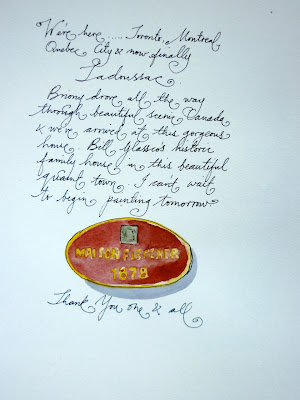 We're here ..... Toronto, Montreal
Quebec City & now finally
Tadoussac..
Briony drove all the way
through beautiful scenic Canada
& we've arrived at this gorgeous
house. Bill Glassco's historic
family house in this beautiful
quaint town. I can't wait
to begin painting tomorrow
MAISON
1878
Thank You one & all